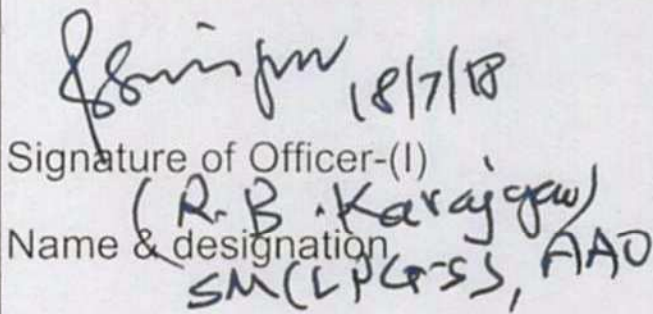 18/7/18
Signature of Officer-(I)
(R.B. Karajgaw)
Name & designation
SM(LPG-S), AAO